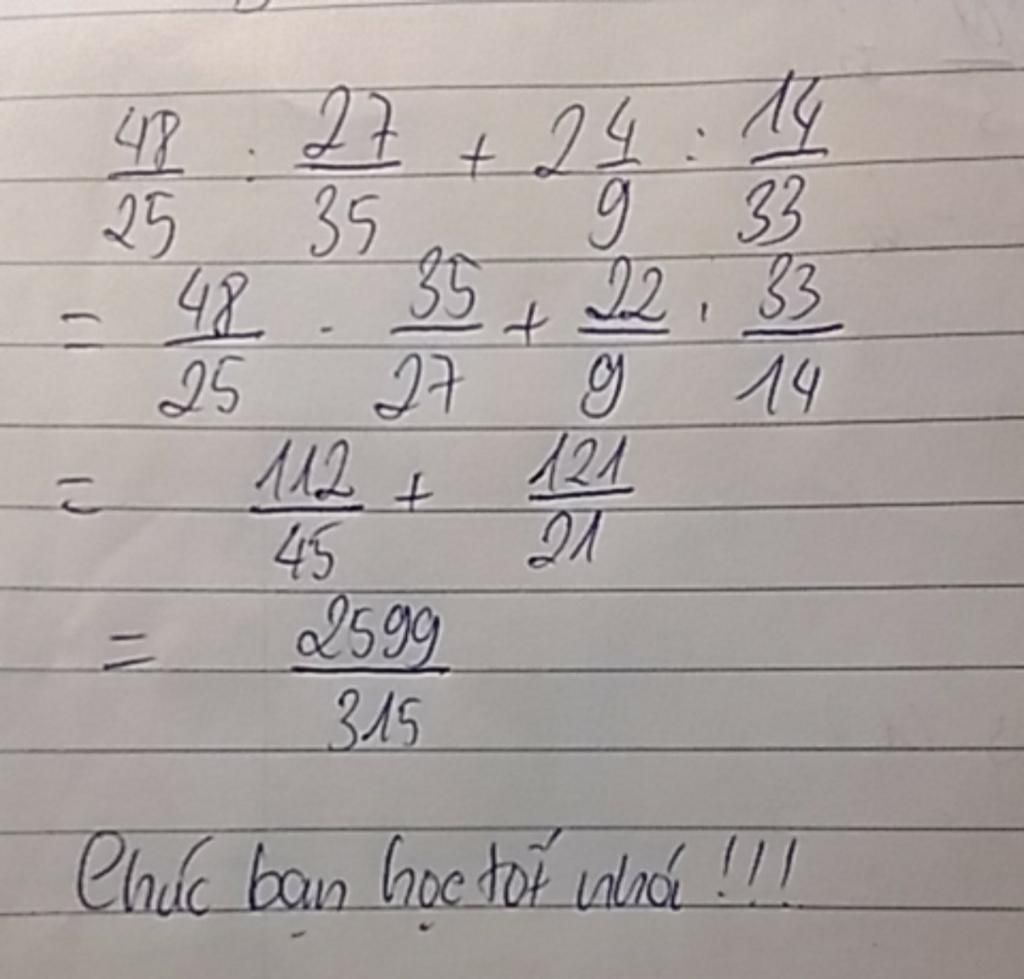 48/25 : 27/35 + 2 4/9 : 14/33
= 48/25 . 35/27 + 22/9 . 33/14
= 112/45 + 121/21
= 2599/315
Chúc bạn học tốt nhá !!!